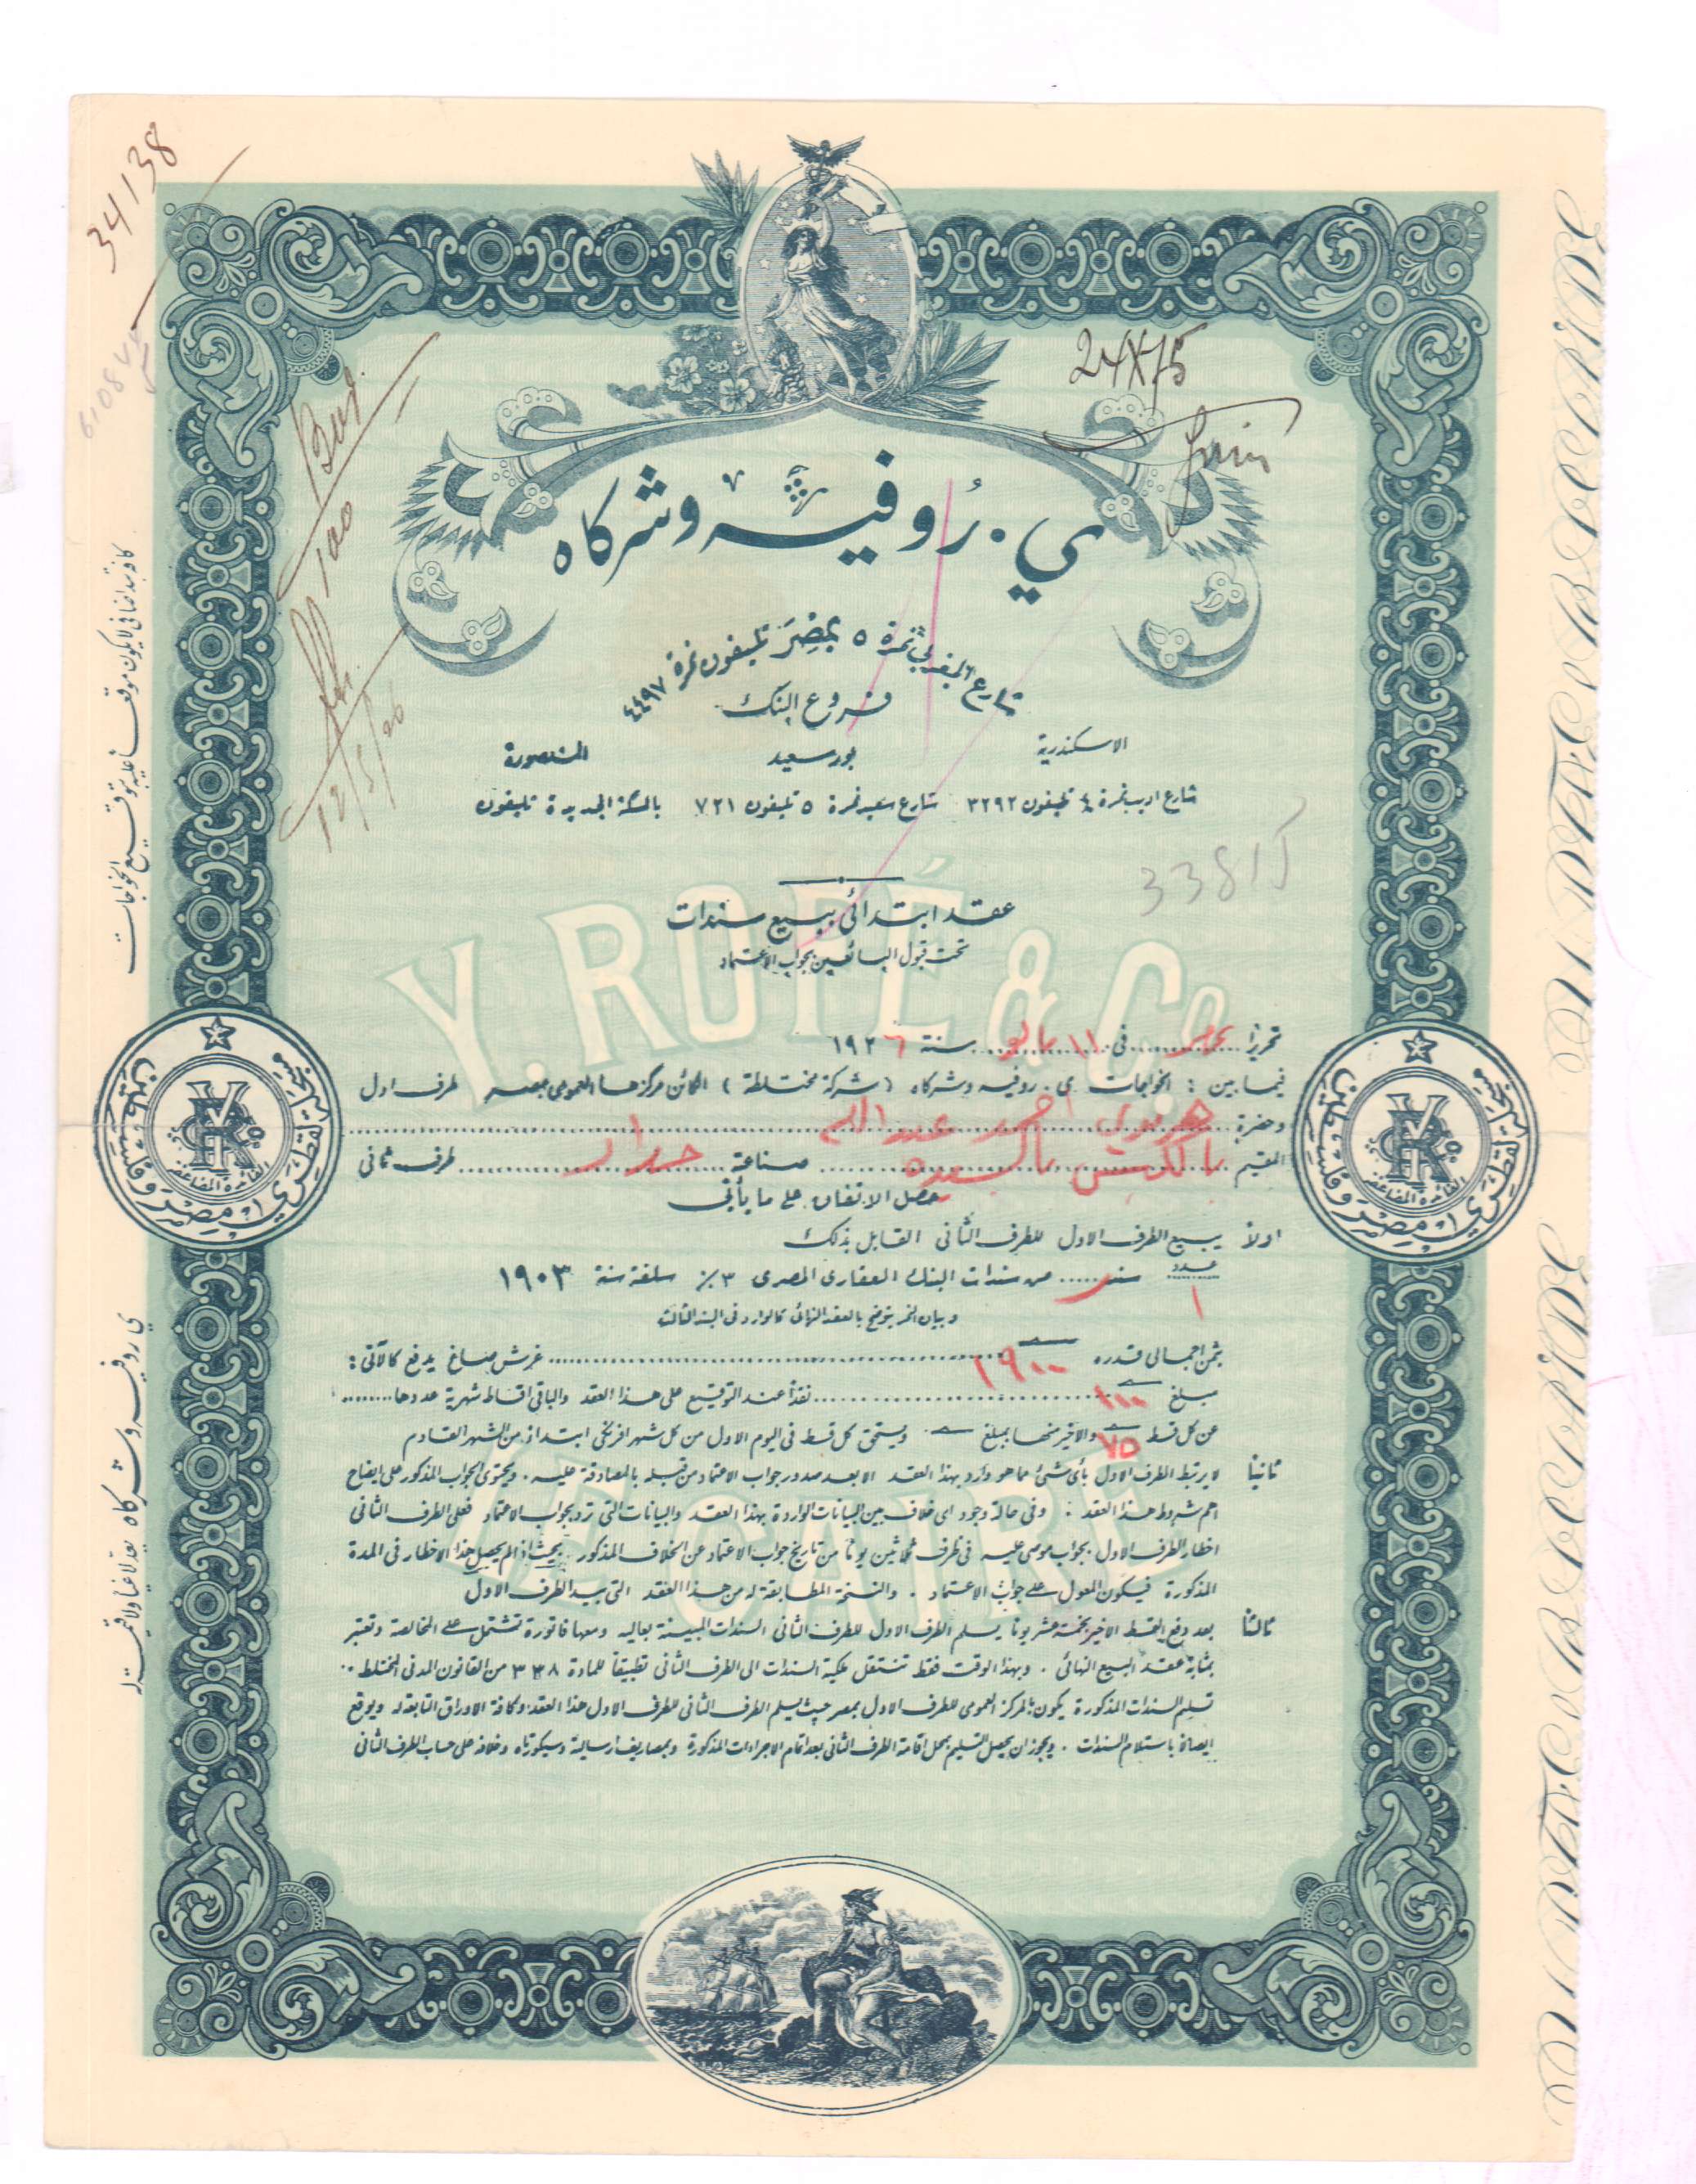 34138
24X75
Juin
100
12/5/26
ي . روفيه وشركاه
شارع المغربي نمرة ٥ بمصر تليفون نمرة ٤٤٩٧
فروع البنك
الاسكندرية بورسعيد المنصورة
شارع اديب نمرة ٤ تليفون ٣٢٩٢ شارع سعيد نمرة ٥ تليفون ٧٢١ بالسكة الجديدة تليفون
33815
عقد ابتدائى ببيع سندات
تحت قبول البائعين بجواب الاعتماد
Y. ROFÉ & Co.
LE CAIRE
تحريرًا بمصر فى ١١ مايو سنة ١٩٢٦
فيما بين : الخواجات ى . روفيه وشركاه ( شركة مختلطة ) الكائن مركزها العمومى بمصر طرف اول
وحضرة احمد عبد الله
المقيم صناعة حداد طرف ثانى
حصل الاتفاق على ما يأتى
اولاً يبيع الطرف الاول للطرف الثانى القابل بذلك
عدد
١ سند من سندات البنك العقارى المصرى ٣٪ سلفة سنة ١٩٠٣
وبيان النمر يتوضح بالعقد النهائى كالوارد فى البند الثالث
بثمن اجمالى قدره ١٩٠٠ غرش صاغ يدفع كالآتى :
مبلغ ١٠٠ نقدًا عند التوقيع على هذا العقد والباقى اقساط شهرية عددها
عن كل قسط ٧٥ والاخير منها بمبلغ ويستحق كل قسط فى اليوم الاول من كل شهر افرنكى ابتداء من الشهر القادم
ثانيا لا يرتبط الطرف الاول بأى شئ مما هو وارد بهذا العقد الا بعد صدور جواب الاعتماد من قبله بالمصادقة عليه . ويحتوى الجواب المذكور على ايضاح
اهم شروط هذا العقد : وفى حالة وجود اى خلاف بين البيانات الواردة بهذا العقد والبيانات التى ترد بجواب الاعتماد فعلى الطرف الثانى
اخطار الطرف الاول بجواب موصى عليه فى ظرف ثلاثين يومًا من تاريخ جواب الاعتماد عن الخلاف المذكور بحيث اذا لم يحصل هذا الاخطار فى المدة
المذكورة فيكون المعول على جواب الاعتماد . والنسخة المطابقة له من هذا العقد التى بيد الطرف الاول
ثالثا بعد دفع القسط الاخير بخمسة عشر يومًا يسلم الطرف الاول للطرف الثانى السندات المبينة بعاليه ومعها فاتورة تشتمل على المخالصة وتعتبر
بمثابة عقد البيع النهائى . وبهذا الوقت فقط تنتقل ملكية السندات الى الطرف الثانى تطبيقًا للمادة ٣٣٨ من القانون المدنى المختلط ..
تسليم السندات المذكورة يكون بالمركز العمومى للطرف الاول بمصر حيث يسلم الطرف الثانى للطرف الاول هذا العقد وكافة الاوراق التابعة له ويوقع
ايصالا باستلام السندات . ويجوز ان يحصل التسليم بمحل اقامة الطرف الثانى بعد اتمام الاجراءات المذكورة وبمصاريف ارسالية وسيكورتاه وخلافه على حساب الطرف الثانى
كل عقد ابتدائى لا يكون موقعًا عليه بتوقيع الخواجات
ى روفيه وشركاه يعد لاغيا ولا قيمة له